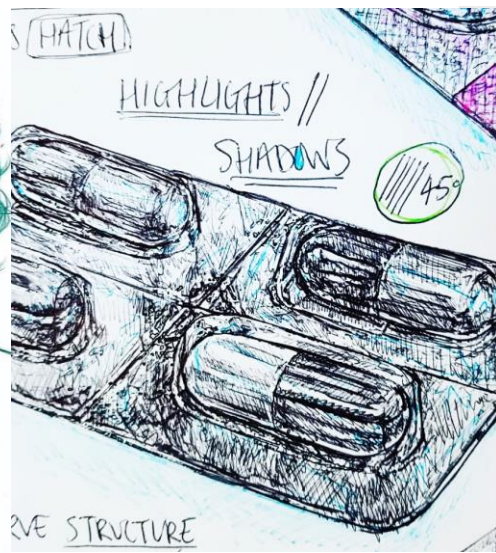 S HATCH
HIGHLIGHTS //
SHADOWS
45°
RVE STRUCTURE